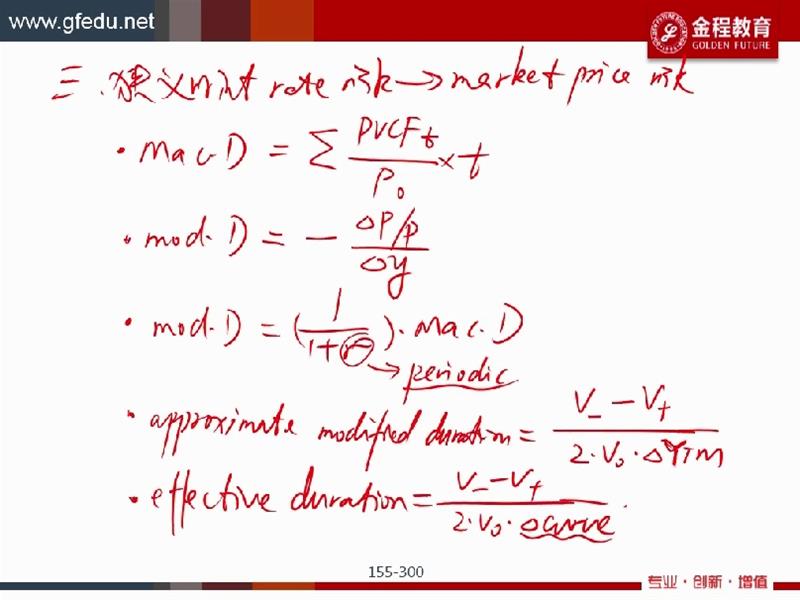 www.gfedu.net
金程教育
GOLDEN FUTURE
三. 狭义的int rate risk → market price risk
· Mac D = Σ PVCFt / P0 × t
· mod. D = − ΔP/P / Δy
· mod. D = (1 / 1+r) · Mac. D
→ periodic
· approximate modified duration = V- − V+ / 2·V0·ΔYTM
· effective duration = V- − V+ / 2·V0·Δcurve
155-300
专业·创新·增值